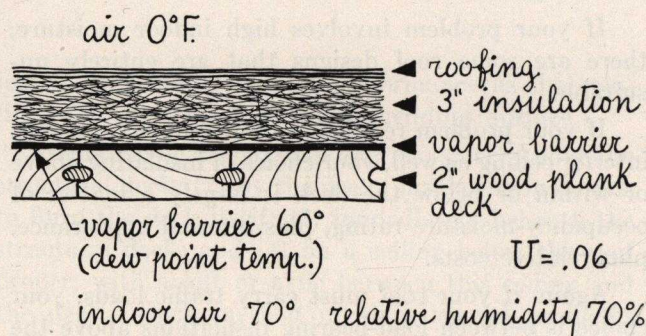 air 0°F.
roofing
3" insulation
vapor barrier
2" wood plank
deck
vapor barrier 60°
(dew point temp.)
U = .06
indoor air 70° relative humidity 70%